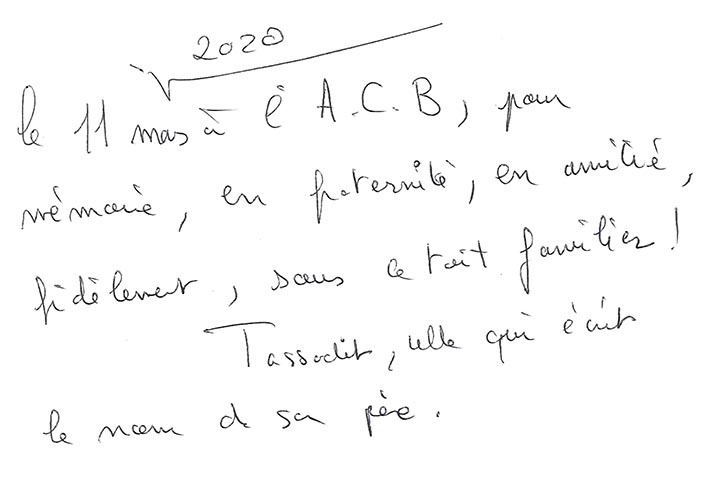 2020
le 11 mars à l'A.C.B, pour
mémoire, en fraternité, en amitié,
fidèlement, sous ce toit familier!
Tassadit, celle qui écrit
le nom de son père.